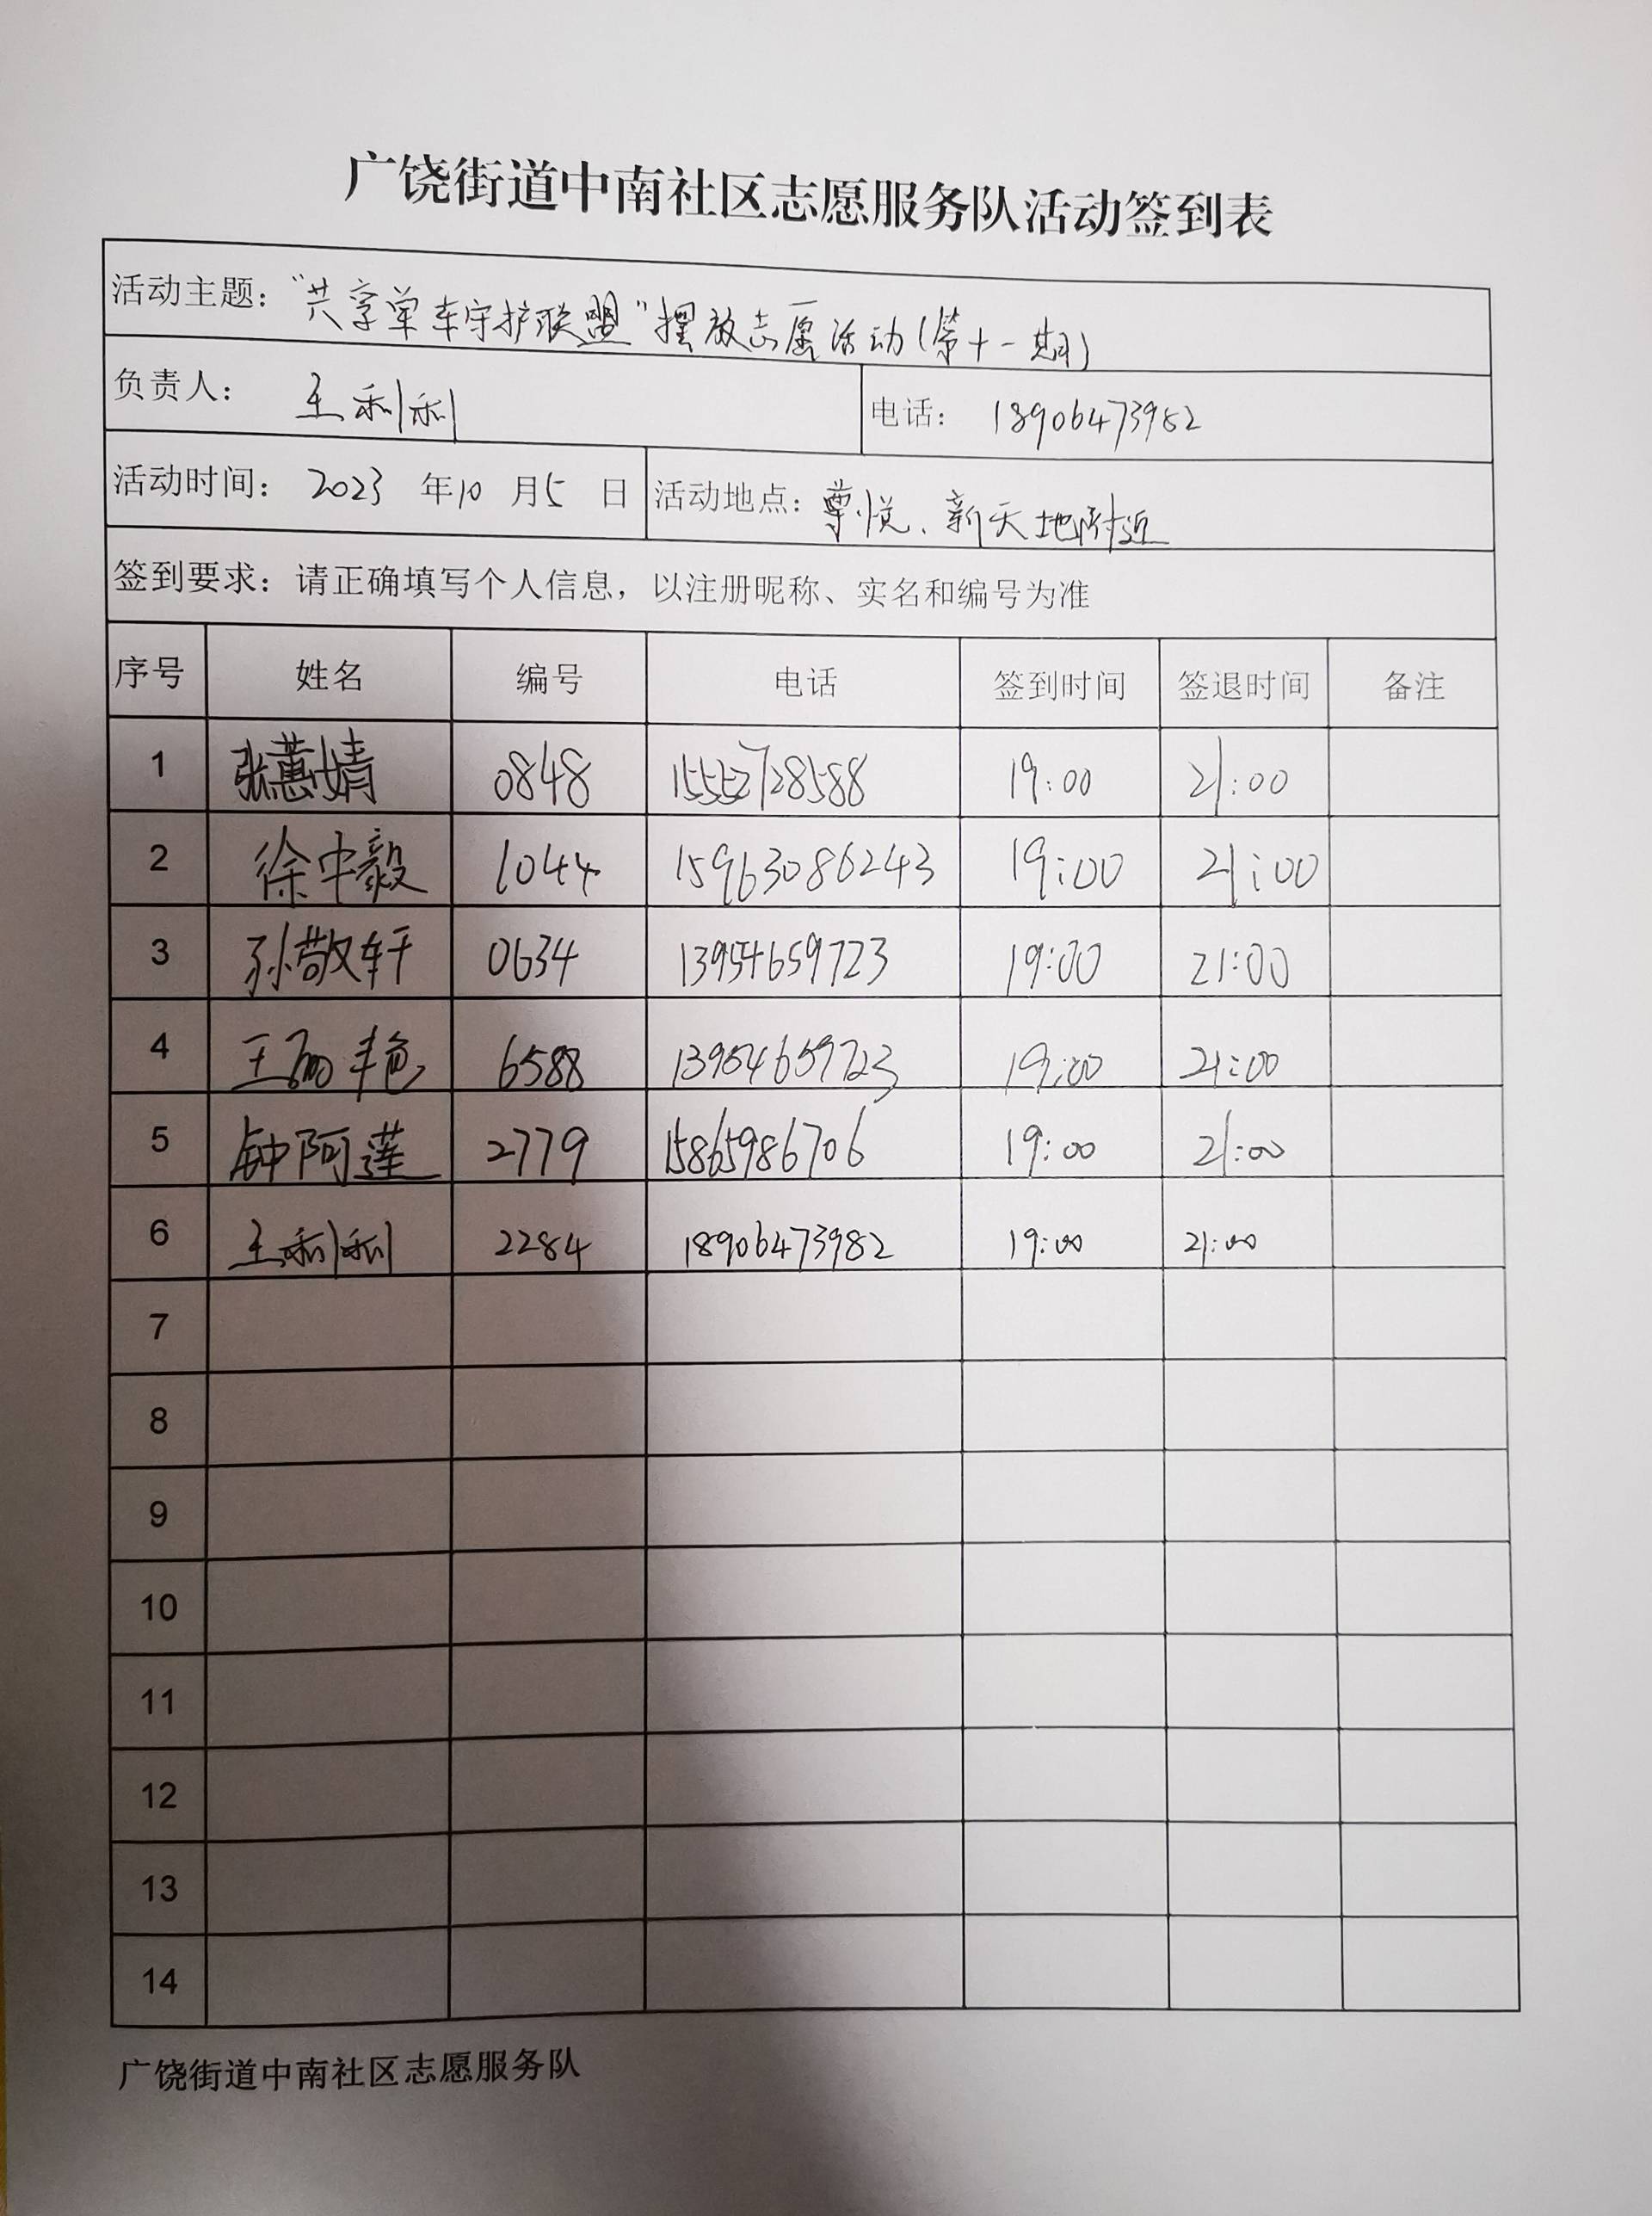 广饶街道中南社区志愿服务队活动签到表
活动主题：“共享单车守护联盟”摆放志愿活动(第十一期)
负责人： 王利利 电话： 18906473982
活动时间： 2023 年10 月5 日 活动地点：尊悦、新天地附近
签到要求：请正确填写个人信息，以注册昵称、实名和编号为准
序号 姓名 编号 电话 签到时间 签退时间 备注
1 张蕙婧 0848 15552728588 19:00 21:00
2 徐中毅 1044 15963086243 19:00 21:00
3 孙敬轩 0634 13954659723 19:00 21:00
4 王丽艳 6588 13954659723 19:00 21:00
5 钟阿莲 2779 15865986706 19:00 21:00
6 王利利 2284 18906473982 19:00 21:00
7
8
9
10
11
12
13
14
广饶街道中南社区志愿服务队